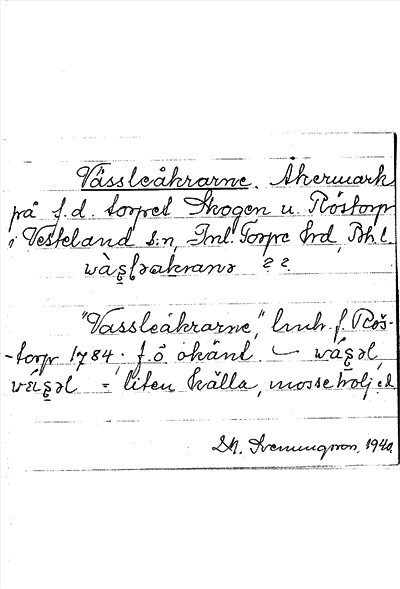 Vässleåkrarne. Åkermark
på f.d. torpet Skogen u. Röstorp
i Vesteland s:n, Inl. Torpe hrd, Bhl.
wàs̬ləakranə ??
"Vassleåkrarne," lmh. f. Rös-
-torp 1784, f.ö. okänt. — wás̬əl,
= liten källa, mossehölj. el
D.A. Svenungsson, 1940.